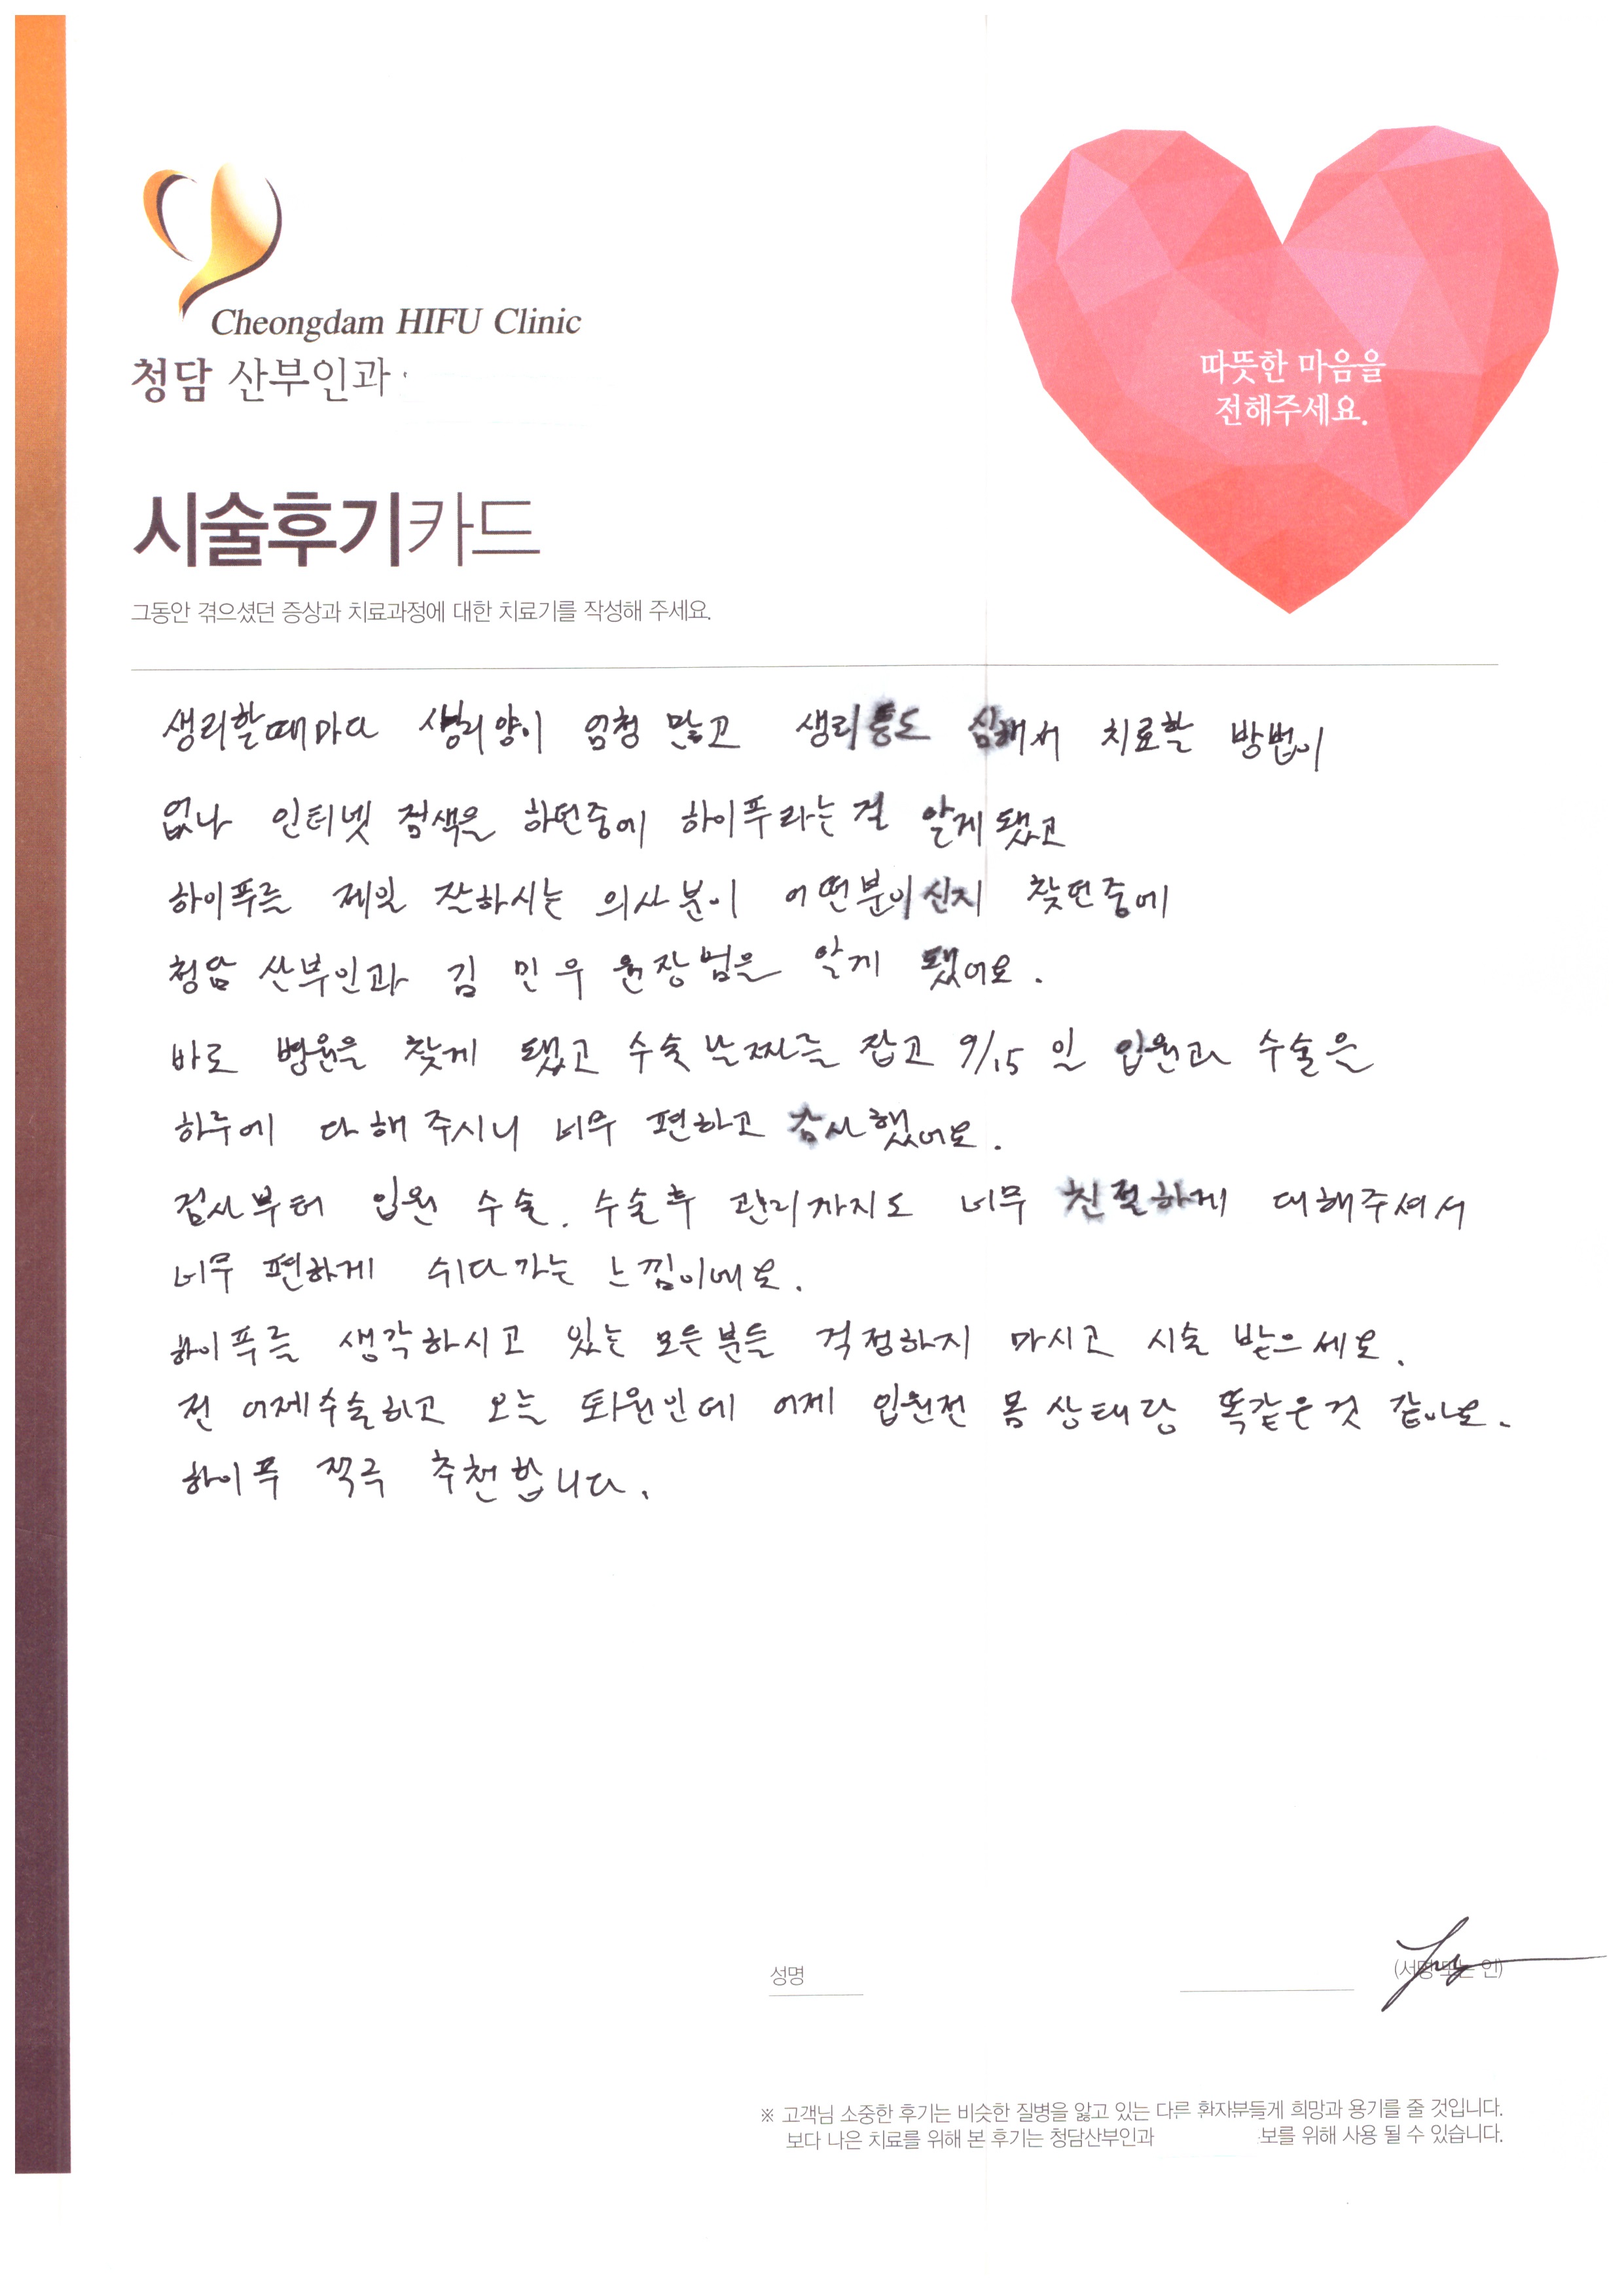 Cheongdam HIFU Clinic
청담 산부인과
따뜻한 마음을
전해주세요.
시술후기카드
그동안 겪으셨던 증상과 치료과정에 대한 치료기를 작성해 주세요.
생리할때마다 생리양이 엄청 많고 생리통도 심해서 치료할 방법이
없나 인터넷 검색을 하던중에 하이푸라는걸 알게됐고
하이푸를 제일 잘하시는 의사분이 어떤분이신지 찾던중에
청담 산부인과 김민우 원장님을 알게 됐어요.
바로 병원을 찾게 됐고 수술날짜를 잡고 9/15일 입원과 수술은
하루에 다해주시니 너무 편하고 감사했어요.
검사부터 입원 수술. 수술후 관리까지도 너무 친절하게 대해주셔서
너무 편하게 쉬다가는 느낌이에요.
하이푸를 생각하시고 있는 모든분들 걱정하지 마시고 시술 받으세요.
전 어제수술하고 오늘 퇴원인데 어제 입원전 몸 상태랑 똑같은것 같아요.
하이푸 적극 추천합니다.
성명
(서명 또는 인)
※ 고객님 소중한 후기는 비슷한 질병을 앓고 있는 다른 환자분들게 희망과 용기를 줄 것입니다.
보다 나은 치료를 위해 본 후기는 청담산부인과 보를 위해 사용 될 수 있습니다.